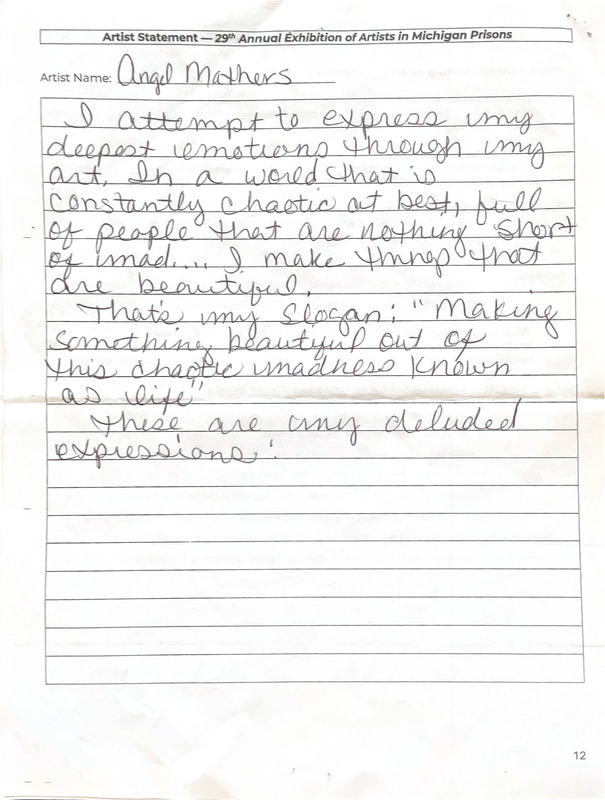 Artist Statement — 29th Annual Exhibition of Artists in Michigan Prisons
Artist Name: Angel Mathers
I attempt to express my
deepest emotions through my
art. In a world that is
constantly chaotic at best, full
of people that are nothing short
of mad.... I make things that
are beautiful.
That's my slogan: "Making
something beautiful out of
this chaotic madness known
as life"
These are my deluded
expressions!
12